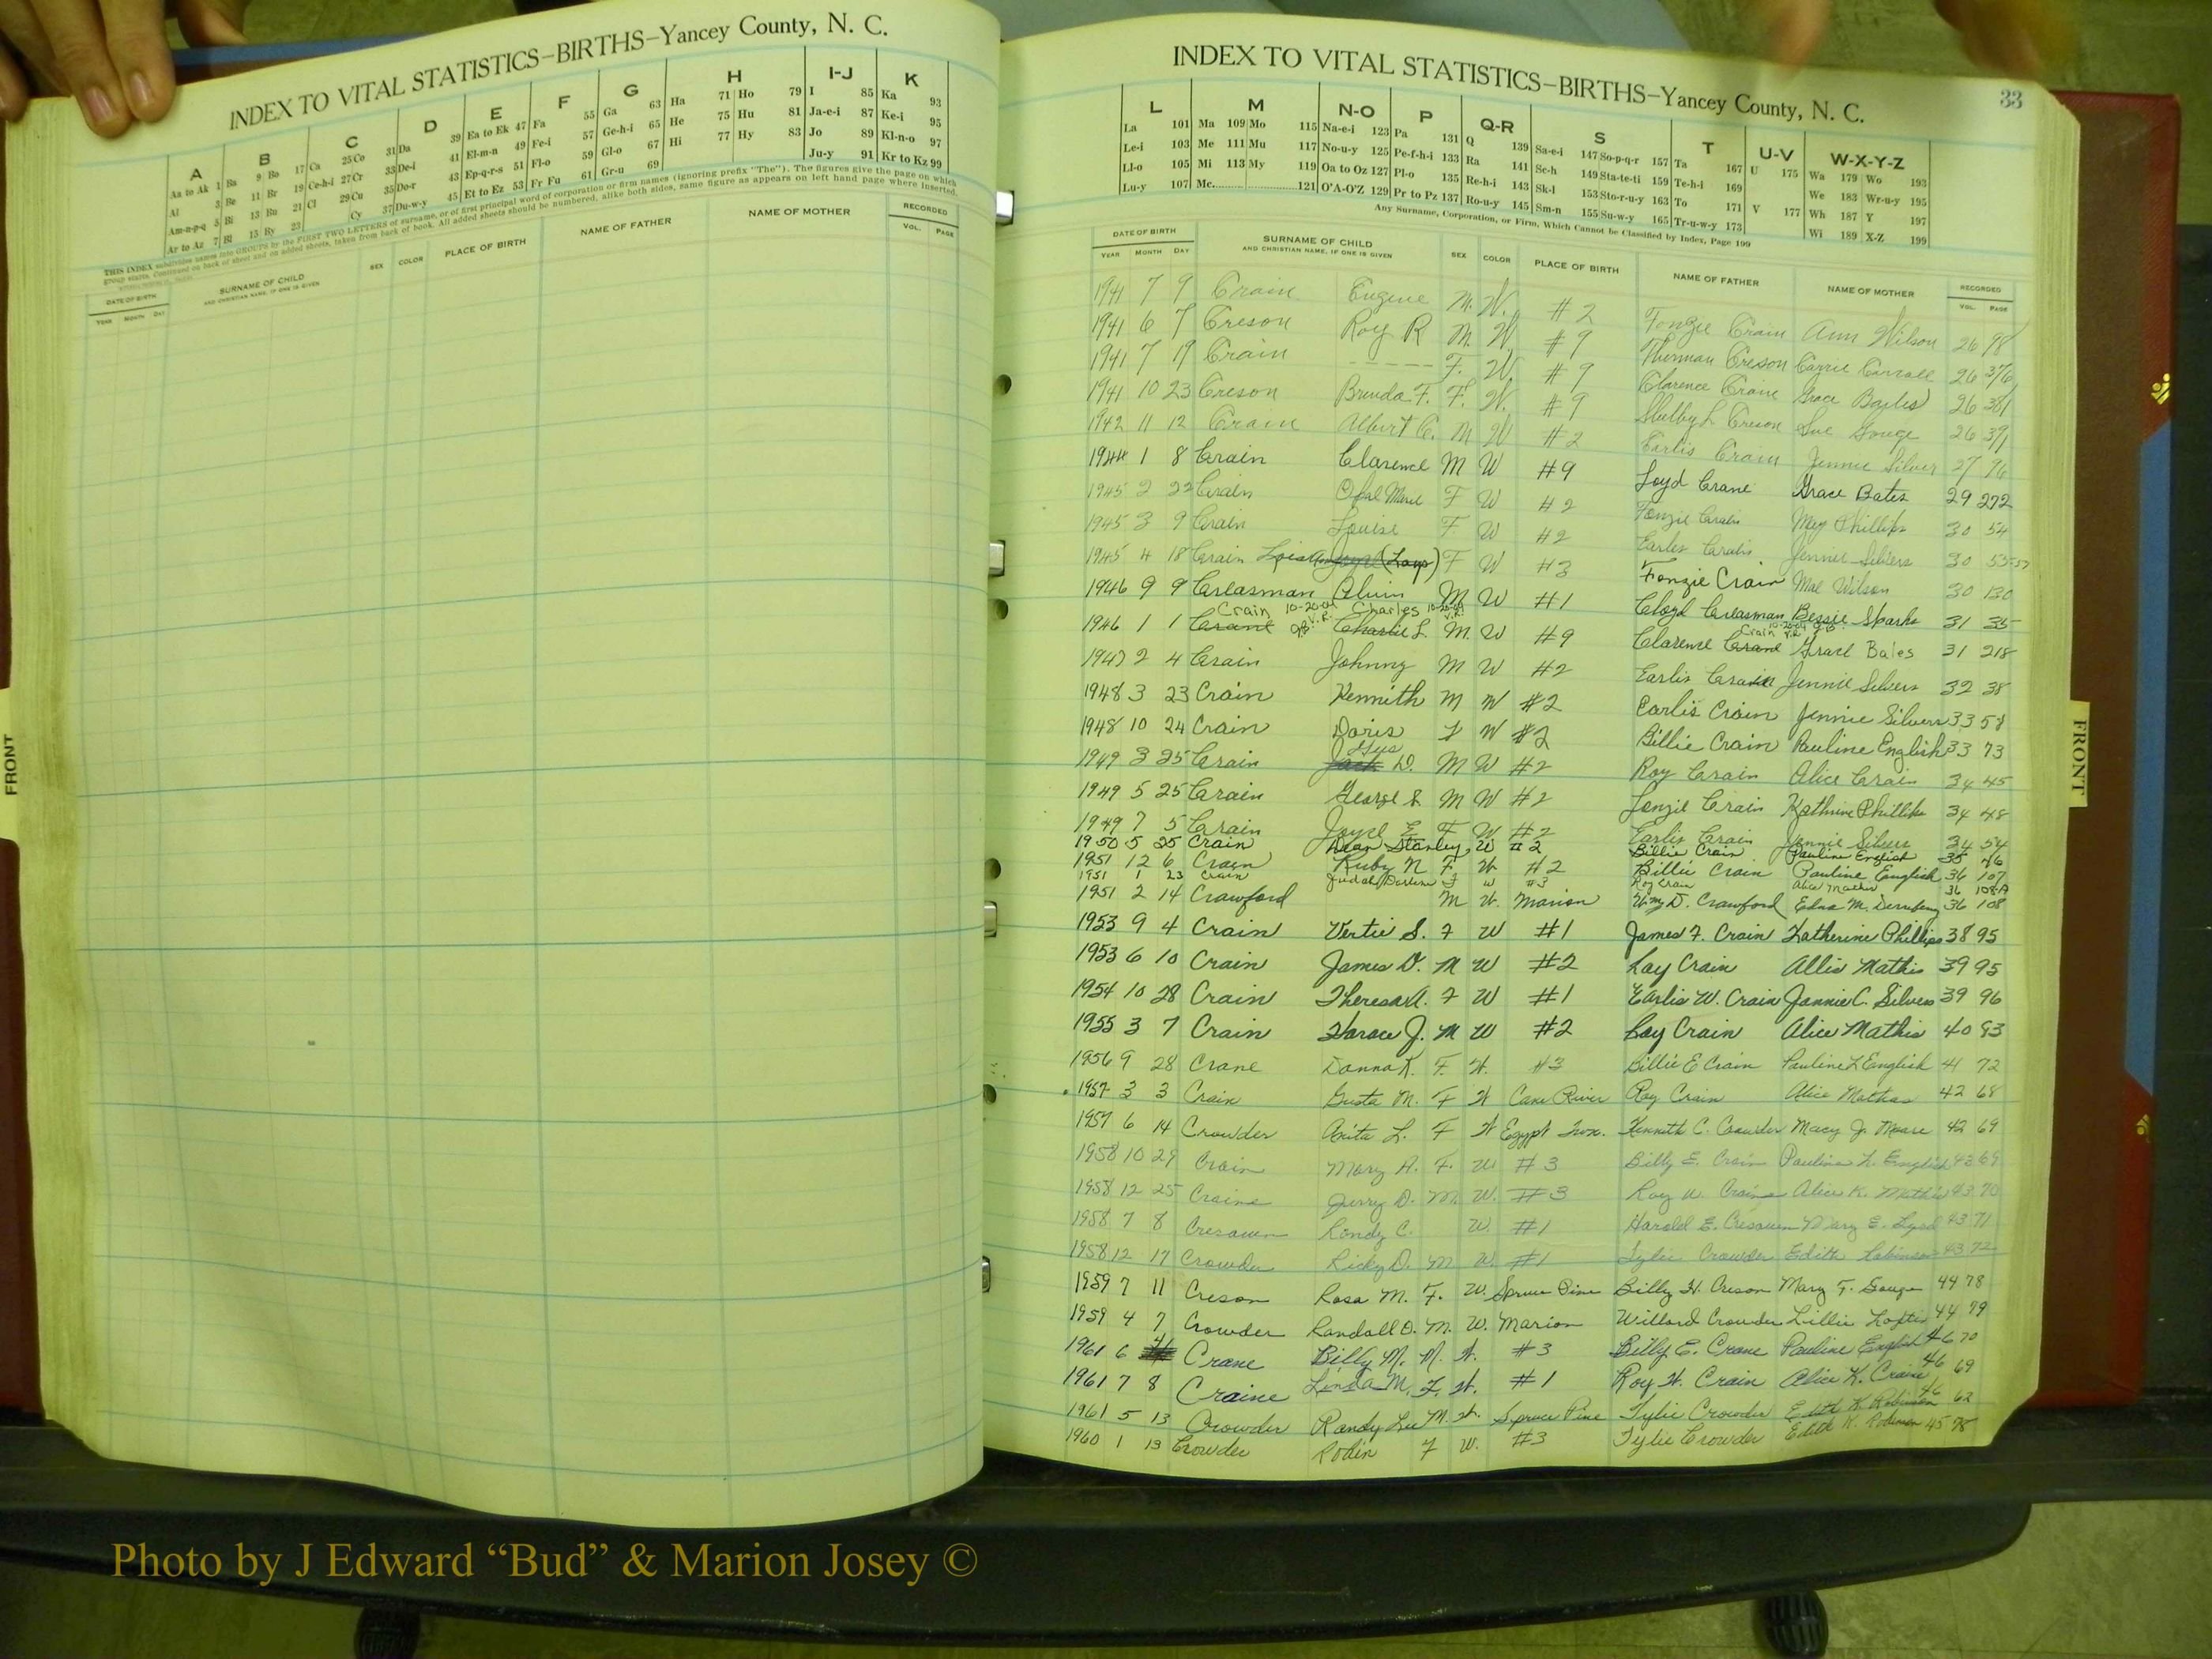 INDEX TO VITAL STATISTICS—BIRTHS—Yancey County, N. C.
A B C D E F G H I-J K
Aa to Ak 1 Ba 9 Bo 17 Ca 25 Co 31 Da 39 Ea to Ek 47 Fa 55 Ga 63 Ha 71 Ho 79 I 85 Ka 93
Al 3 Be 11 Br 19 Ce-h-i 27 Cr 33 De-i 41 El-m-n 49 Fe-i 57 Ge-h-i 65 He 75 Hu 81 Ja-e-i 87 Ke-i 95
Am-n-p-q 5 Bi 13 Bu 21 Cl 29 Cu 35 Do-r 43 Ep-q-r-s 51 Fl-o 59 Gl-o 67 Hi 77 Hy 83 Jo 89 Kl-n-o 97
Ar to Az 7 Bl 15 By 23 Cy 37 Du-w-y 45 Et to Ez 53 Fr Fu 61 Gr-u 69 Ju-y 91 Kr to Kz 99
THIS INDEX subdivides names into GROUPS by the FIRST TWO LETTERS of surname, or of first principal word of corporation or firm names (ignoring prefix "The"). The figures give the page on which
group starts. Continued on back of sheet and on added sheets, taken from back of book. All added sheets should be numbered, alike both sides, same figure as appears on left hand page where inserted.
DATE OF BIRTH SURNAME OF CHILD SEX COLOR PLACE OF BIRTH NAME OF FATHER NAME OF MOTHER RECORDED
YEAR MONTH DAY AND CHRISTIAN NAME, IF ONE IS GIVEN VOL. PAGE
FRONT
INDEX TO VITAL STATISTICS—BIRTHS—Yancey County, N. C.
33
L M N-O P Q-R S T U-V W-X-Y-Z
La 101 Ma 109 Mo 115 Na-e-i 123 Pa 131 Q 139 Sa-e-i 147 So-p-q-r 157 Ta 167 U 175 Wa 179 Wo 193
Le-i 103 Me 111 Mu 117 No-u-y 125 Pe-f-h-i 133 Ra 141 Sc-h 149 Sta-te-ti 159 Te-h-i 169 We 183 Wr-u-y 195
Ll-o 105 Mi 113 My 119 Oa to Oz 127 Pl-o 135 Re-h-i 143 Sk-l 153 Sto-r-u-y 163 To 171 V 177 Wh 187 Y 197
Lu-y 107 Mc 121 O'A-O'Z 129 Pr to Pz 137 Ro-u-y 145 Sm-n 155 Su-w-y 165 Tr-u-w-y 173 Wi 189 X-Z 199
Any Surname, Corporation, or Firm, Which Cannot be Classified by Index, Page 199
DATE OF BIRTH SURNAME OF CHILD SEX COLOR PLACE OF BIRTH NAME OF FATHER NAME OF MOTHER RECORDED
YEAR MONTH DAY AND CHRISTIAN NAME, IF ONE IS GIVEN VOL. PAGE
1941 7 9 Crain Eugene M. W. #2 Fonzie Crain Ann Wilson 26 98
1941 6 7 Creson Roy R M. W #9 Thurman Creson Carrie 26 376
1941 7 19 Crain ----- F. W #9 Clarence Crane Grace 26 381
1941 10 23 Creson Brenda F. F. W. #9 Shelby L Creson Sue Gouge 26 391
1942 11 12 Crain Albert C. M W #2 Earlis Crain Jennie Silver 27 76
1944 1 8 Crain Clarence M W #9 Loyd Crane Grace Bates 29 272
1945 2 22 Crain Opal Marie F W #2 Fonzie Crain May Phillips 30 54
1945 3 9 Crain Louise F W #2 Earles Crain Jennie Silvers 30
1945 4 18 Crain Lois F W #3 Fonzie Crain Mae Wilson 30 130
1946 9 9 Creasman Alvin M W #1 Cloyd Creasman Bessie Sparks 31 35
Crain 10-20-04 V.R. Charles 10-20-04 V.R. Crain 10-20-04
1946 1 1 Crane Charlie L. M W #9 Clarence Crane Grace Bales 31 218
1947 2 4 Crain Johnny M W #2 Earlis Crain Jennie Silvers 32 38
1948 3 23 Crain Kennith M W #2 Earlis Crain Jennie Silvers 33 58
1948 10 24 Crain Doris F W #2 Billie Crain Pauline English 33 73
Gus
1949 3 25 Crain Jack D. M W #2 Roy Crain Alice Crain 34 45
1949 5 25 Crain George S. M W #2 Fonzie Crain Kathrine Phillips 34 48
1949 7 5 Crain Joyce E F W #2 Earlis Crain Jennie Silvers 34 54
1950 5 25 Crain Dean Stanley W #2 Billie Crain Pauline English 35 76
1951 12 6 Crain Ruby N F. W. #2 Billie Crain Pauline English 36 107
1951 1 23 Crain Darlene F W #3 Roy Crain Alice Mathis 36 108A
1951 2 14 Crawford M W. Marion Wm D. Crawford Edna M. 36 108
1953 9 4 Crain Vertie S. F W #1 James F. Crain Katherine Phillips 38 95
1953 6 10 Crain James D. M W #2 Roy Crain Allis Mathis 39 95
1954 10 28 Crain Theresa A. F W #1 Earlis W. Crain Jannie C. Silvers 39 96
1955 3 7 Crain Horace J. M W #2 Roy Crain Alice Mathis 40 83
1956 9 28 Crane Donna K. F. W. #3 Billie E Crain Pauline L English 41 72
1957 3 3 Crain Gusta M. F W Cane River Roy Crain Alice Mathas 42 68
1957 6 14 Crowder Anita L. F W Egypt Twn. Kenneth C. Crowder Macy J. Moore 42 69
1958 10 29 Crain Mary A. F. W #3 Billy E. Crain Pauline L. English 43 69
1958 12 25 Craine Jerry D. M. W. #3 Roy W. Craine Alice K. Mathis 43 70
1958 7 8 Randy C. W. #1 Harold E. Mary E. 43 71
1958 12 17 Crowder Ricky D. M W. #1 Tylie Crowder Edith Robinson 43 72
1959 7 11 Creson Rosa M. F. W. Spruce Pine Billy H. Creson Mary F. Gouge 44 78
1959 4 7 Crowder Randall D. M. W. Marion Willard Crowder Lillie Loftis 44 79
1961 6 Crane Billy M. M. W. #3 Billy E. Crane Pauline English 46 70
1961 7 8 Craine Linda M. F. W. #1 Roy W. Crain Alice K. Craine 46 69
1961 5 13 Crowder Randy Lee M. W. Spruce Pine Tylie Crowder Edith K. Robinson 46 62
1960 1 19 Crowder Robin F W. #3 Tylie Crowder Edith K. Robinson 45 78
FRONT
Photo by J Edward “Bud” & Marion Josey ©